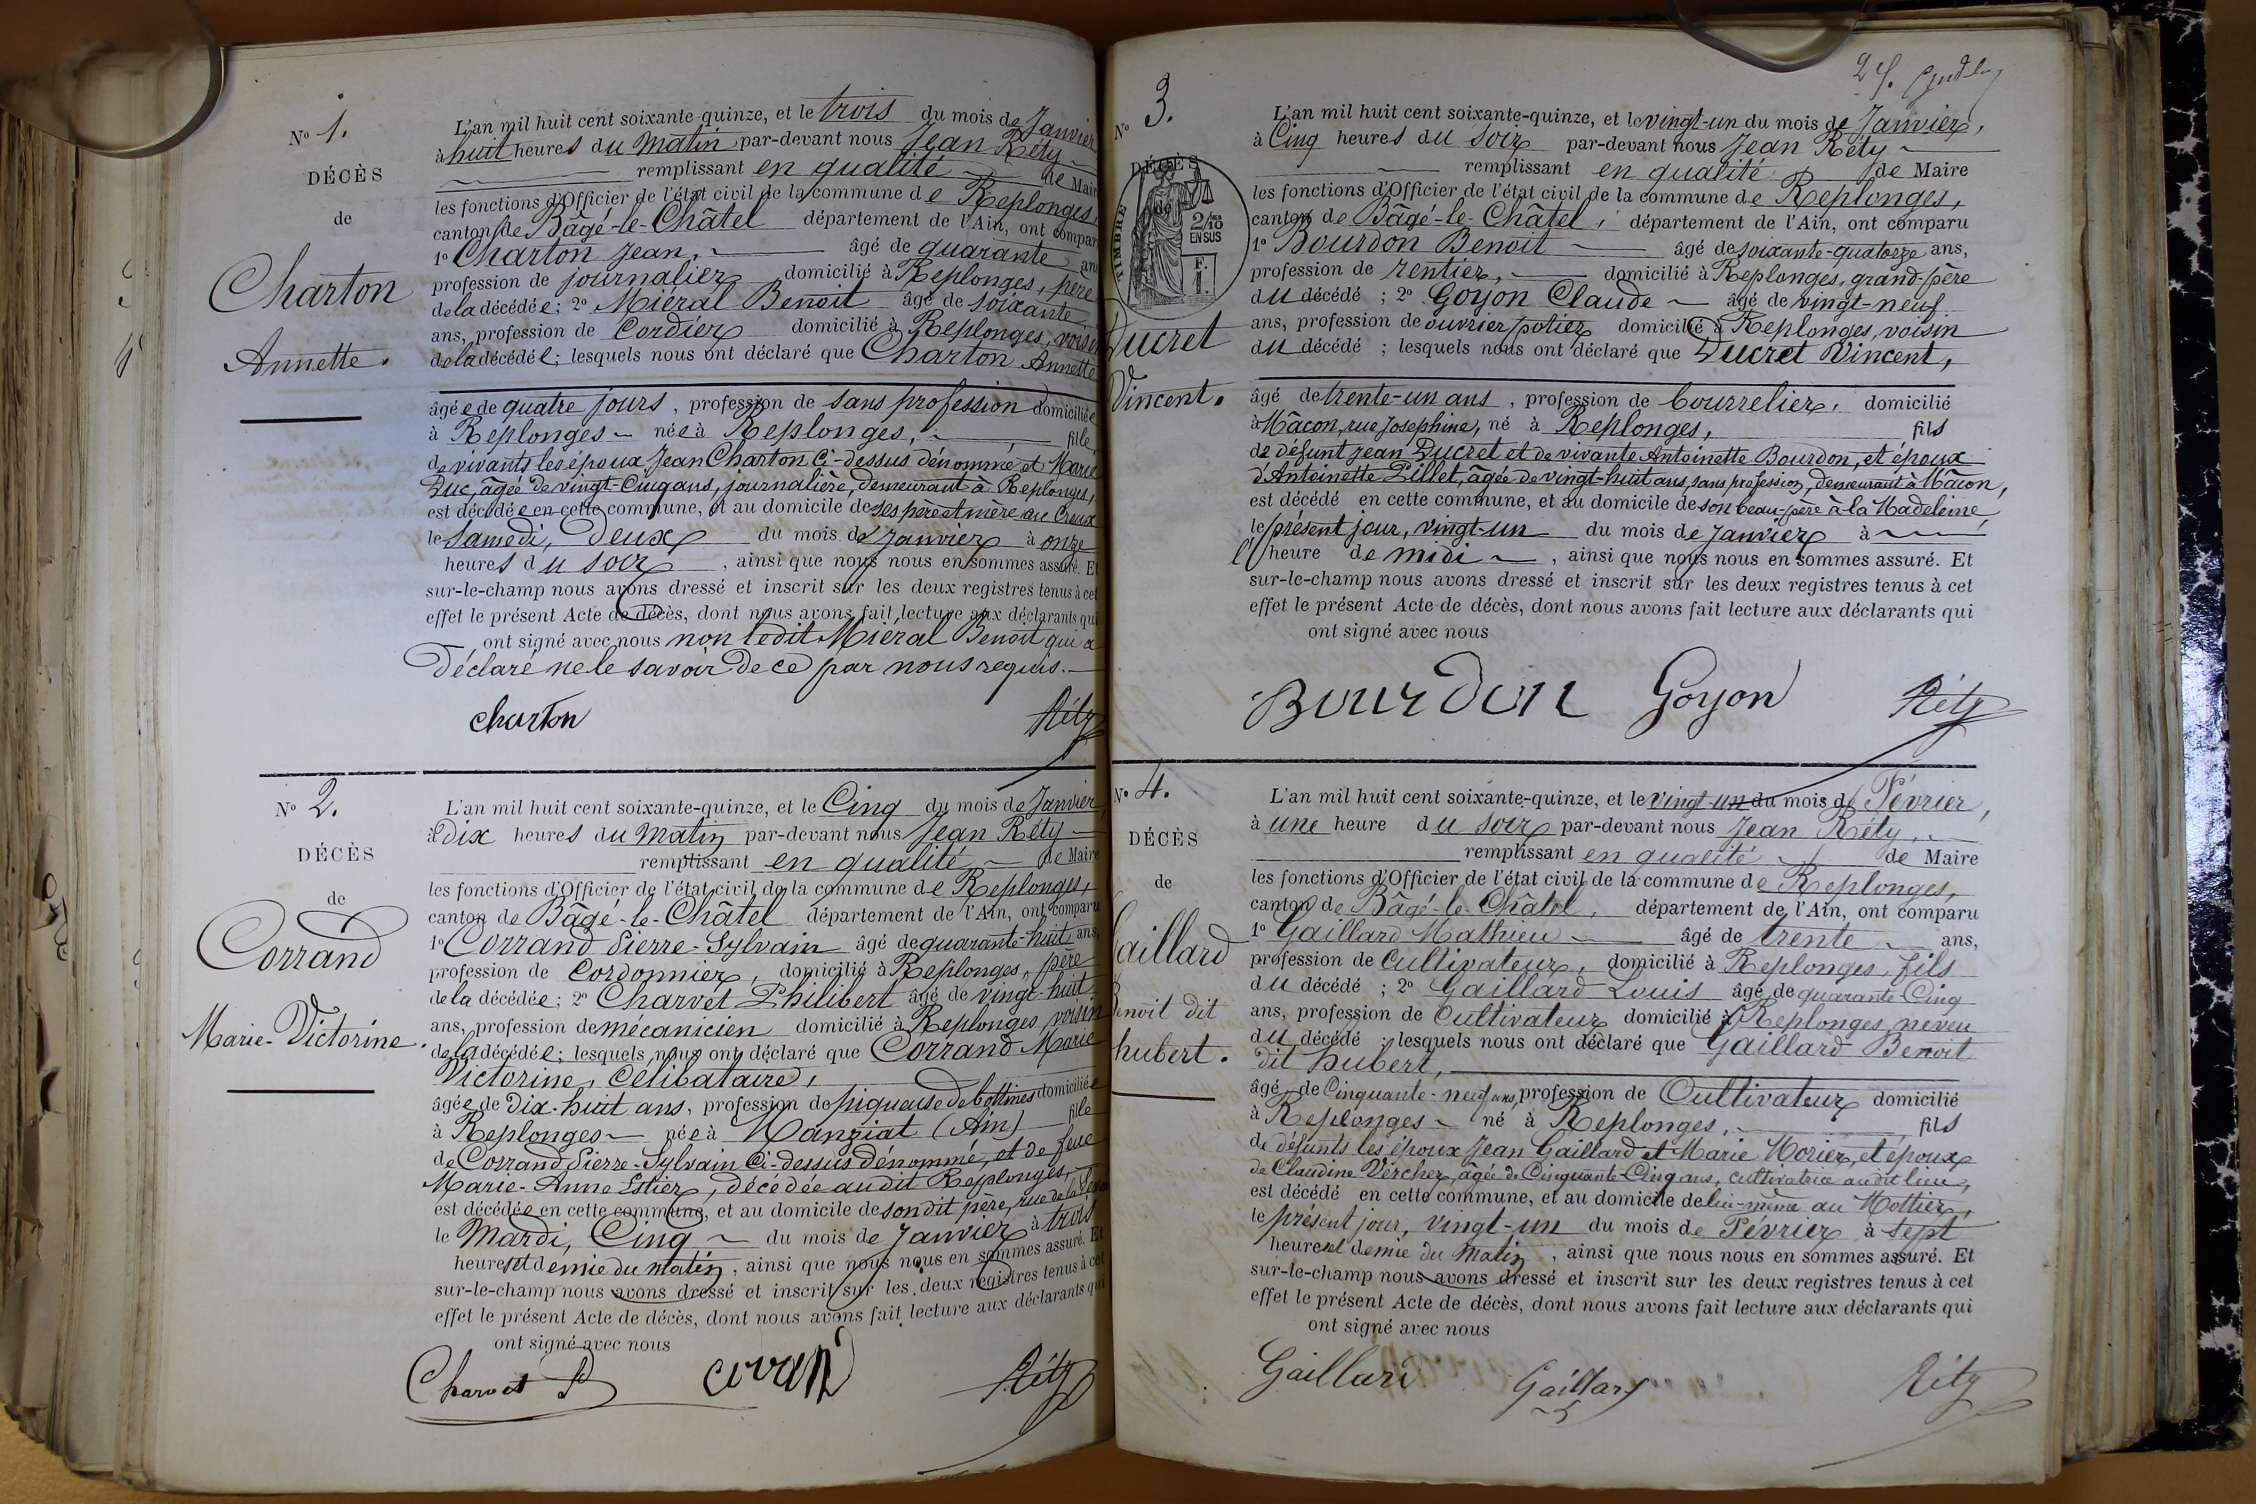 N° 1.
DÉCÈS
de
Charton
Annette.
L'an mil huit cent soixante-quinze, et le trois du mois de Janvier
à huit heures du matin par-devant nous Jean Réty
remplissant en qualité de Maire
les fonctions d'Officier de l'état civil de la commune de Replonges,
canton de Bâgé-le-Châtel département de l'Ain, ont compar
1° Charton Jean, âgé de quarante ans
profession de journalier domicilié à Replonges, père
de la décédée; 2° Miéral Benoit âgé de soixante
ans, profession de Cordier domicilié à Replonges, voisin
de la décédée; lesquels nous ont déclaré que Charton Annette
âgée de quatre jours, profession de sans profession domiciliée
à Replonges née à Replonges, fille
de vivants les époux Jean Charton Ci-dessus dénommé et Marie
Duc, âgée de vingt-Cinq ans, journalière, demeurant à Replonges,
est décédée en cette commune, et au domicile de ses père et mère au Creux
le samedi, Deux du mois de Janvier à onze
heures du soir, ainsi que nous nous en sommes assuré. Et
sur-le-champ nous avons dressé et inscrit sur les deux registres tenus à cet
effet le présent Acte de décès, dont nous avons fait lecture aux déclarants qui
ont signé avec nous non ledit Miéral Benoit qui a
Déclaré ne le savoir De ce par nous requis.
charton Réty
N° 2.
DÉCÈS
de
Corrand
Marie-Victorine.
L'an mil huit cent soixante-quinze, et le Cinq du mois de Janvier
à Dix heures du matin par-devant nous Jean Réty
remplissant en qualité de Maire
les fonctions d'Officier de l'état civil de la commune de Replonges,
canton de Bâgé-le-Châtel département de l'Ain, ont comparu
1° Corrand Pierre-Sylvain âgé de quarante-huit ans,
profession de Cordonnier, domicilié à Replonges, père
de la décédée; 2° Charvet Philibert âgé de vingt-huit
ans, profession de mécanicien domicilié à Replonges voisin
de la décédée; lesquels nous ont déclaré que Corrand Marie
Victorine, Célibataire,
âgée de Dix-huit ans, profession de piqueuse de bottines domiciliée
à Replonges née à Manziat (Ain) fille
de Corrand Pierre-Sylvain Ci-dessus dénommé, et de feue
Marie-Anne Estier, décédée audit Replonges,
est décédée en cette commune, et au domicile de son dit père, rue de la
le Mardi, Cinq du mois de Janvier à trois
heures et demie du matin, ainsi que nous nous en sommes assuré. Et
sur-le-champ nous avons dressé et inscrit sur les deux registres tenus à cet
effet le présent Acte de décès, dont nous avons fait lecture aux déclarants qui
ont signé avec nous
Charvet P corran Réty
N° 3.
DÉCÈS
de
TIMBRE
2/10
EN SUS
F.
Ducret
Vincent.
L'an mil huit cent soixante-quinze, et le vingt-un du mois de Janvier,
à Cinq heures du soir par-devant nous Jean Réty
remplissant en qualité de Maire
les fonctions d'Officier de l'état civil de la commune de Replonges,
canton de Bâgé-le-Châtel, département de l'Ain, ont comparu
1° Bourdon Benoit âgé de soixante-quatorze ans,
profession de rentier, domicilié à Replonges, grand-père
du décédé; 2° Goyon Claude âgé de vingt-neuf
ans, profession de ouvrier potier domicilié à Replonges, voisin
du décédé; lesquels nous ont déclaré que Ducret Vincent,
âgé de trente-un ans, profession de bourrelier, domicilié
à Mâcon, rue Josephine, né à Replonges, fils
de défunt Jean Ducret et de vivante Antoinette Bourdon, et époux
d'Antoinette Pillet, âgée de vingt-huit ans, sans profession, demeurant à Mâcon,
est décédé en cette commune, et au domicile de son beau-père à la Madeleine
le présent jour, vingt-un du mois de Janvier à
l'heure de midi, ainsi que nous nous en sommes assuré. Et
sur-le-champ nous avons dressé et inscrit sur les deux registres tenus à cet
effet le présent Acte de décès, dont nous avons fait lecture aux déclarants qui
ont signé avec nous
Bourdon Goyon Réty
N° 4.
DÉCÈS
de
Gaillard
Benoit dit
hubert.
L'an mil huit cent soixante-quinze, et le vingt-un du mois de Février,
à une heure du soir par-devant nous Jean Réty,
remplissant en qualité de Maire
les fonctions d'Officier de l'état civil de la commune de Replonges,
canton de Bâgé-le-Châtel, département de l'Ain, ont comparu
1° Gaillard Mathieu âgé de trente ans,
profession de Cultivateur, domicilié à Replonges, fils
du décédé; 2° Gaillard Louis âgé de quarante-Cinq
ans, profession de Cultivateur domicilié à Replonges, neveu
du décédé; lesquels nous ont déclaré que Gaillard Benoit
dit hubert,
âgé de Cinquante-neuf ans, profession de Cultivateur domicilié
à Replonges né à Replonges, fils
de défunts les époux Jean Gaillard et Marie Morier, et époux
de Claudine Vercher, âgée de Cinquante-Cinq ans, cultivatrice audit lieu,
est décédé en cette commune, et au domicile de lui-même au Mottier,
le présent jour, vingt-un du mois de Février à sept
heures et demie du matin, ainsi que nous nous en sommes assuré. Et
sur-le-champ nous avons dressé et inscrit sur les deux registres tenus à cet
effet le présent Acte de décès, dont nous avons fait lecture aux déclarants qui
ont signé avec nous
Gaillard Gaillard Réty